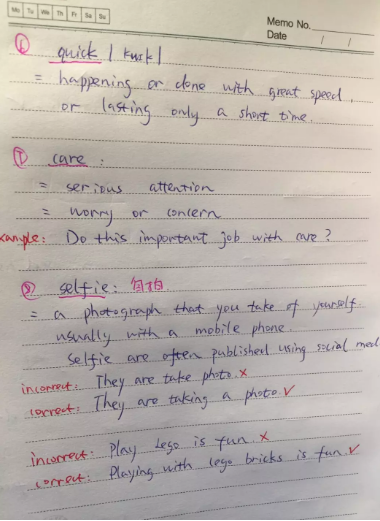 Mo Tu We Th Fr Sa Su
Memo No.
Date / /
⑥ quick / kwɪk /
= happening or done with great speed,
or lasting only a short time.
⑦ care :
= serious attention
= worry or concern
xample: Do this important job with care?
⑧ selfie: 自拍
= a photograph that you take of yourself
usually with a mobile phone.
Selfie are often published using social med
incorrect: They are take photo. ×
correct: They are taking a photo. ✓
incorrect: Play Lego is fun. ×
correct: Playing with Lego bricks is fun. ✓